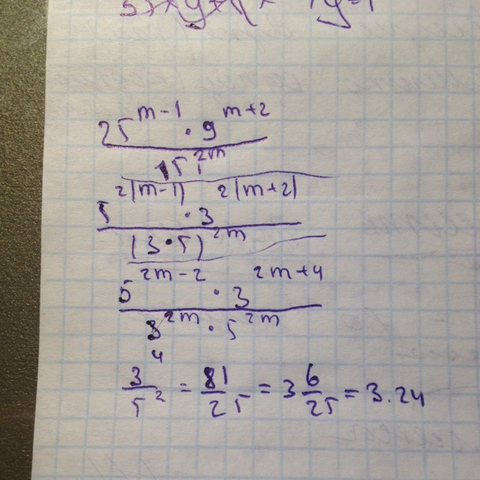 25^{m-1} · 9^{m+2}
15^{2m}
5^{2(m-1)} · 3^{2(m+2)}
(3·5)^{2m}
5^{2m-2} · 3^{2m+4}
3^{2m} · 5^{2m}
3^4/5^2 = 81/25 = 3 6/25 = 3.24